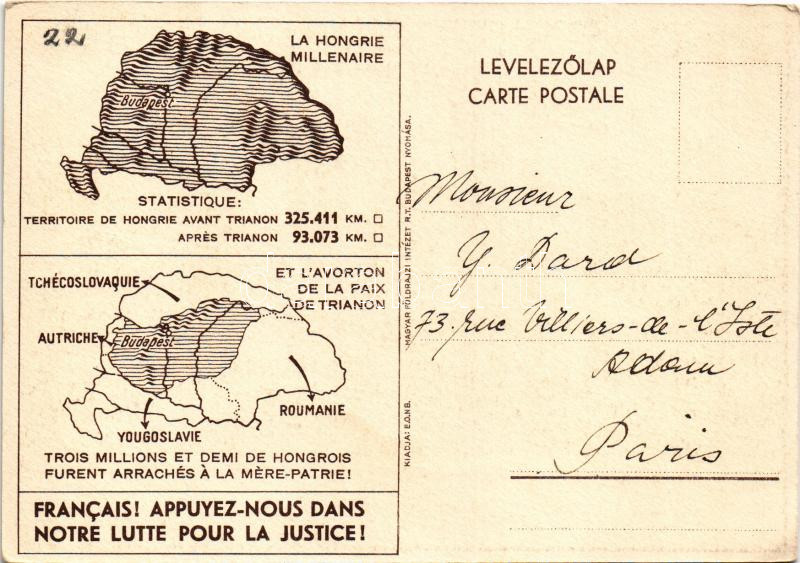 22
LA HONGRIE
MILLENAIRE
Budapest
STATISTIQUE:
TERRITOIRE DE HONGRIE AVANT TRIANON 325.411 KM. □
APRÈS TRIANON 93.073 KM. □
TCHÉCOSLOVAQUIE
ET L'AVORTON
DE LA PAIX
DE TRIANON
AUTRICHE
Budapest
ROUMANIE
YOUGOSLAVIE
TROIS MILLIONS ET DEMI DE HONGROIS
FURENT ARRACHÉS À LA MÈRE-PATRIE!
FRANÇAIS! APPUYEZ-NOUS DANS
NOTRE LUTTE POUR LA JUSTICE!
KIADJA: E.O.N.B. MAGYAR FÖLDRAJZI INTÉZET R.T. BUDAPEST NYOMÁSA.
LEVELEZŐLAP
CARTE POSTALE
Monsieur
Y. Dard
73. rue Villiers-de-l'Isle
Adam
Paris